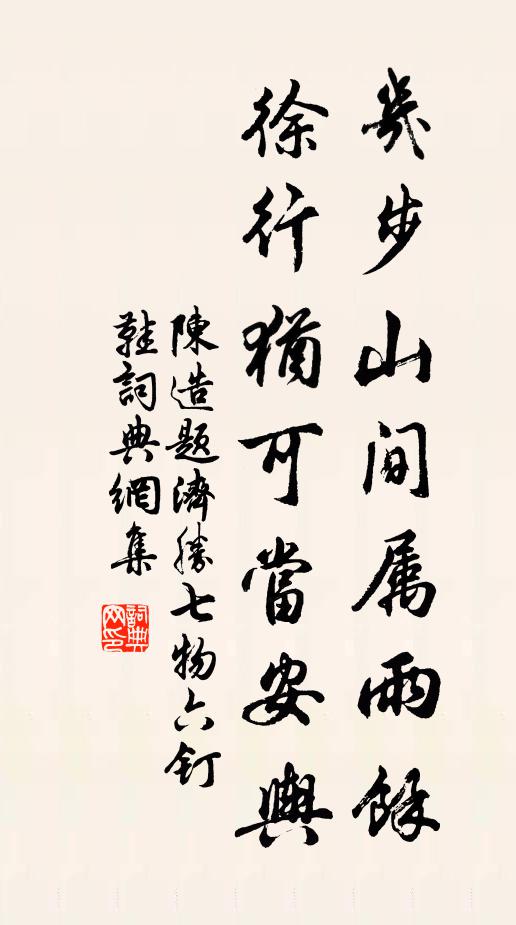 幾步山間属雨餘
徐行猶可當安輿
陳造題濟勝七物六釘
鞋詞典網集
詞典
网印